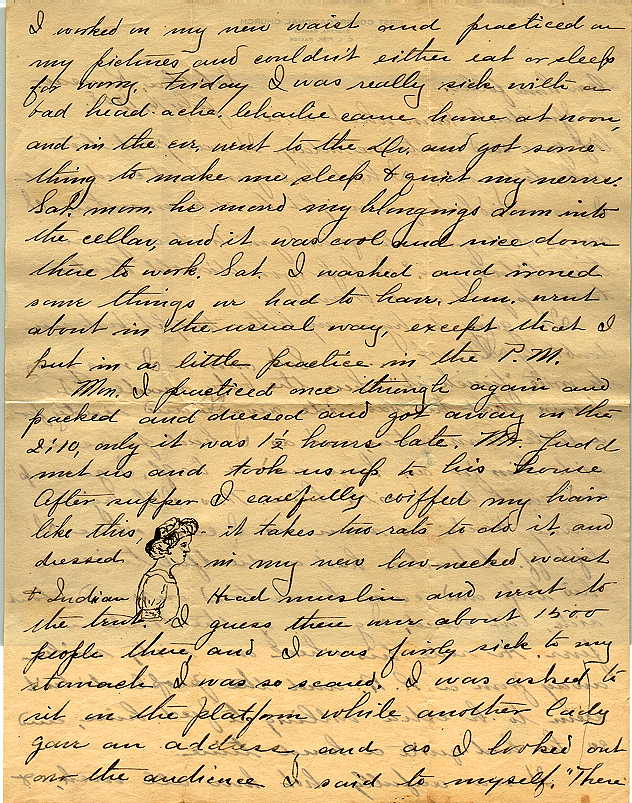 I worked on my new waist and practiced on
my pictures and couldn't either eat or sleep
for worry. Friday I was really sick with a
bad head-ache. Charlie came home at noon,
and in the eve. went to the Dr. and got some
thing to make me sleep & quiet my nerves.
Sat. morn. he moved my blongings down into
the cellar, and it was cool and nice down
there to work. Sat. I washed and ironed
some things we had to have. Sun. went
about in the usual way, except that I
put in a little practice in the P.M.
Mon. I practiced once through again and
packed and dressed and got away on the
2:10, only it was 1½ hours late. Mr. Judd
met us and took us up to his home
After supper I carefully coiffed my hair
like this, - it takes two rats to do it, and
dressed in my new low-necked waist
& Indian Head muslin and went to
the tent. I guess there were about 1500
people there, and I was fairly sick to my
stomach I was so scared. I was asked to
sit on the platform while another lady
gave an address, and as I looked out
over the audience I said to myself, "There